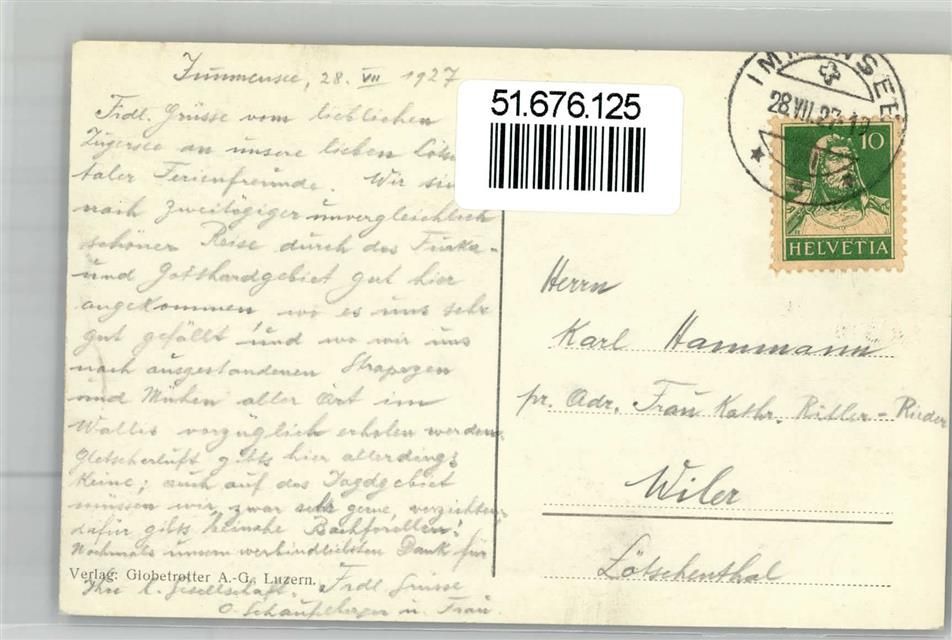 Immensee, 28. VII 1927
Frdl. Grüsse vom lieblichen
Zugersee an unsere lieben Löts
taler Ferienfreunde. Wir sin
nach zweitägiger unvergleichlich
schöner Reise durch das Furka-
und Gotthardgebiet gut hier
angekommen wo es uns sehr
gut gefällt und wo wir uns
nach ausgestandenen Strapazen
und Mühen aller Art im
Wallis vorzüglich erholen werden.
Gletscherluft gibts hier allerdings
keine; auch auf das Jagdgebiet
müssen wir, zwar sehr gerne, verzichten,
dafür gibts beinahe Bachforellen!
Nochmals unsern verbindlichsten Dank für
Ihre l. Gesellschaft. Frdl Grüsse
O. Schaufelberger u. Frau.
Verlag: Globetrotter A.-G., Luzern.
51.676.125
IMMENSEE
28.VII.27.
10
HELVETIA
Herrn
Karl Hammann
pr. Adr. Frau Kathr. Ritler-Rieder
Wiler
Lötschenthal